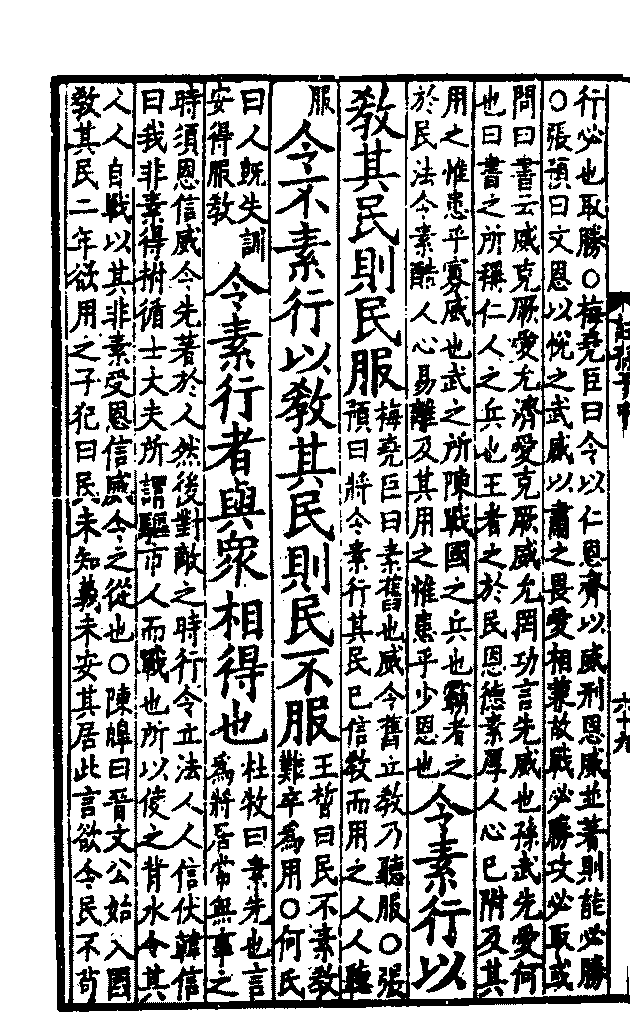 行必也取勝○梅堯臣曰令以仁恩齊以威刑恩威並著則能必勝
○張預曰文恩以悅之武威以肅之畏愛相兼故戰必勝攻必取或
問曰書云威克厥愛允濟愛克厥威允罔功言先威也孫武先愛何
也曰書之所稱仁人之兵也王者之於民恩德素厚人心已附及其
用之惟患乎寡威也武之所陳戰國之兵也霸者之
於民法令素酷人心易離及其用之惟患乎少恩也
令素行以
教其民則民服
梅堯臣曰素舊也威令舊立教乃聽服○張
預曰將令素行其民已信教而用之人人聽
服
令不素行以教其民則民不服
王晳曰民不素教
難卒為用○何氏
曰人既失訓
安得服教
令素行者與眾相得也
杜牧曰素先也言
為將居常無事之
時須恩信威令先著於人然後對敵之時行令立法人人信伏韓信
曰我非素得拊循士大夫所謂驅市人而戰也所以使之背水令其
人人自戰以其非素受恩信威令之從也○陳皥曰晉文公始入國
教其民二年欲用之子犯曰民未知義未安其居此言欲令民不苟
六十九